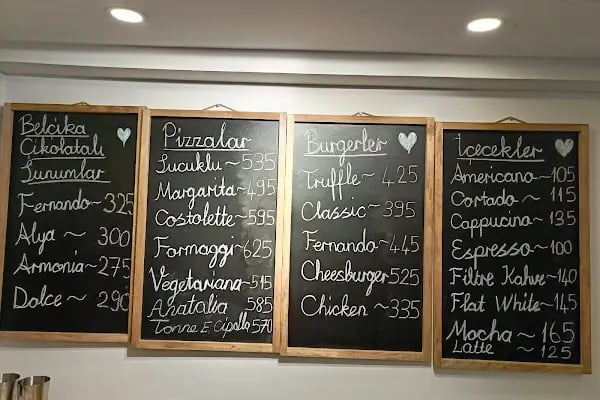 Belçika
Çikolatalı
Sunumlar
Fernando~325
Alya ~ 300
Armonia~275
Dolce ~ 290
Pizzalar
Sucuklu~535
Margarita~495
Costolette~595
Formaggi~625
Vegetariana~515
Anatalia 585
Tonne E Cipolla 570
Burgerler
Truffle~ 425
Classic~395
Fernando~445
Cheesburger525
Chicken ~335
İçecekler
Americano~105
Cortado ~ 115
Cappucino~135
Espresso~100
Filtre Kahve~140
Flat White~145
Mocha ~ 165
Latte ~ 125